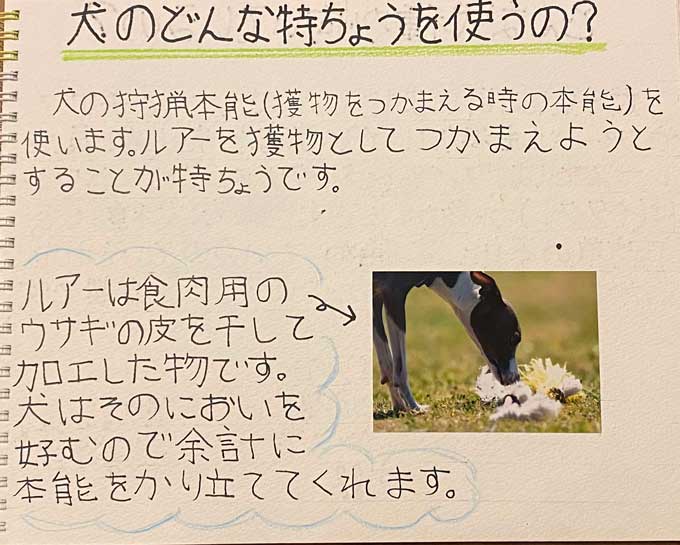 犬のどんな特ちょうを使うの?
犬の狩猟本能(獲物をつかまえる時の本能)を
使います。ルアーを獲物としてつかまえようと
することが特ちょうです。
ルアーは食肉用の
ウサギの皮を干して
加工した物です。
犬はそのにおいを
好むので余計に
本能をかり立ててくれます。